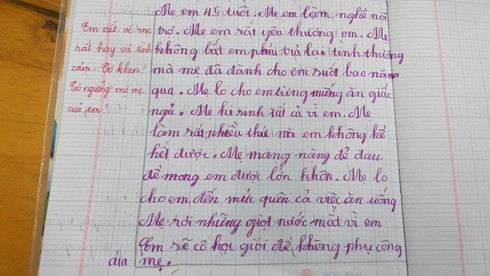 Mẹ em 45 tuổi. Mẹ em làm nghề nội
trợ. Mẹ em rất yêu thương em. Mẹ
không bắt em phải trả lại tình thương
mà mẹ đã dành cho em suốt bao năm
qua. Mẹ lo cho em từng miếng ăn giấc
ngủ. Mẹ hi sinh tất cả vì em. Mẹ
làm rất nhiều thứ mà em không kể
hết được. Mẹ mang nặng đẻ đau
để mang em được lớn khôn. Mẹ lo
cho em đến mức quên cả việc ăn uống
Mẹ rơi những giọt nước mắt vì em
Em sẽ cố học giỏi để không phụ công
của mẹ.
Em viết về mẹ
rất hay và tình
cảm. Cô khen!
Cô ngưỡng mộ mẹ
của em!